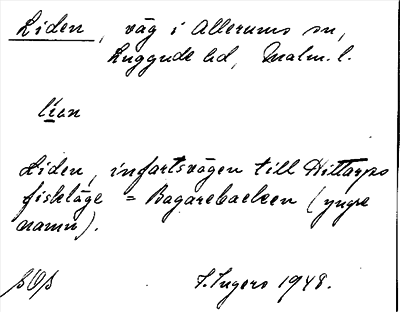 Liden, väg i Allerums sn,
Luggude hd, Malm. l.
lian
Liden, infartsvägen till Hittarps
fiskeläge = Bagarebacken (yngre
namn).
I. Ingers 1948.